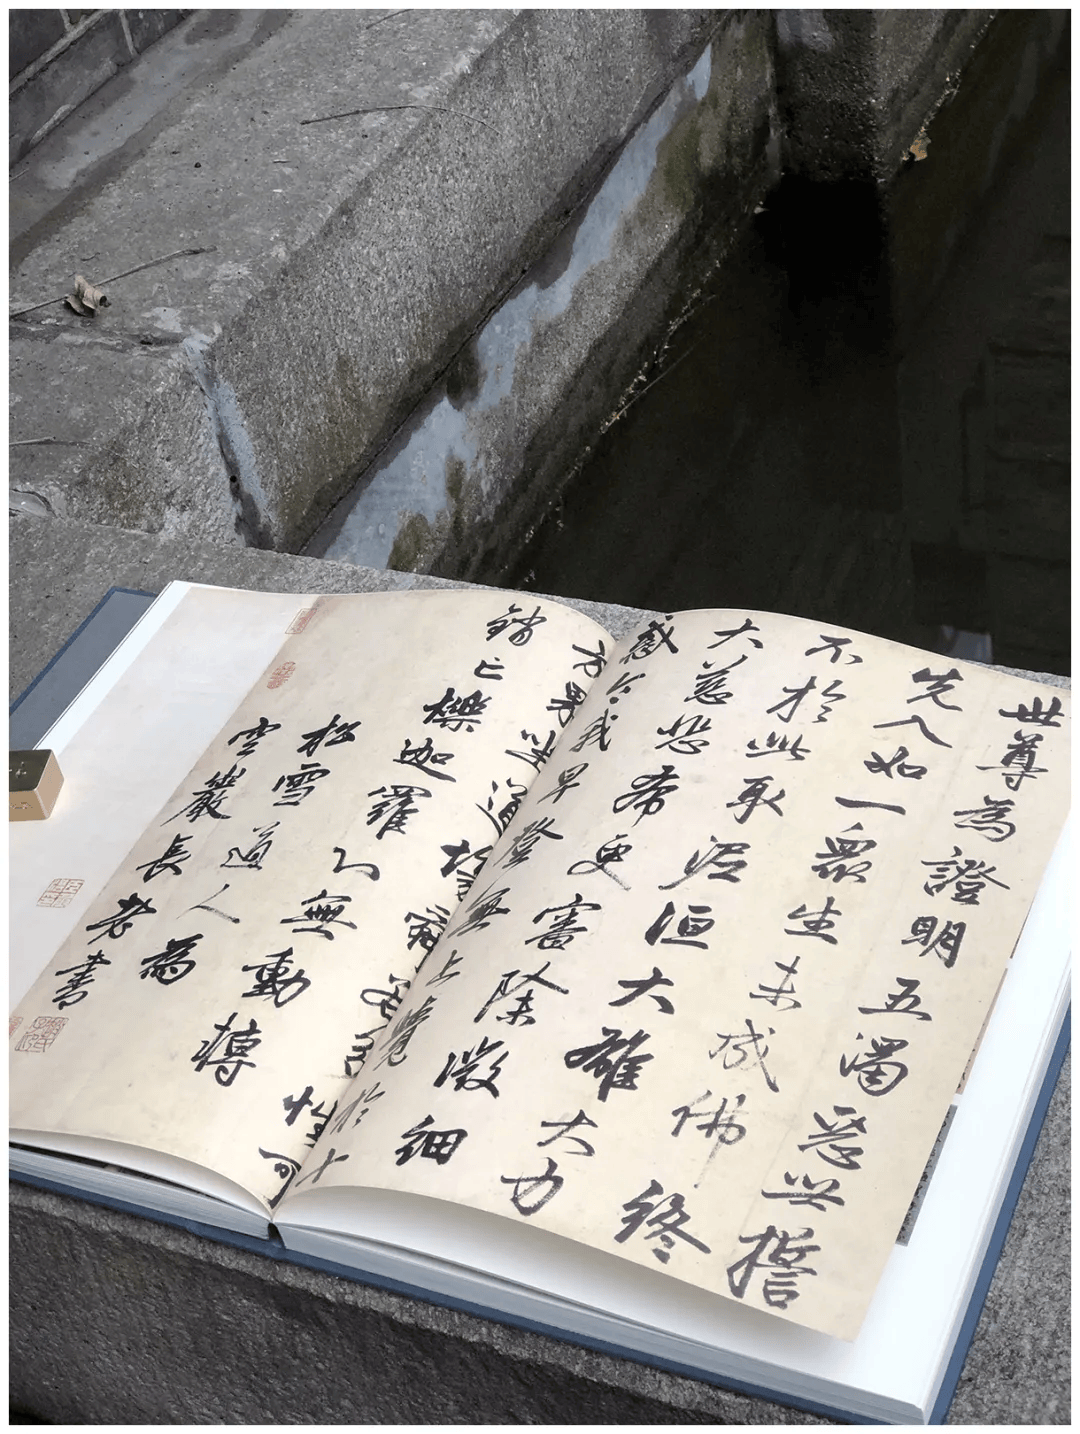 世尊為證明五濁惡世誓
先入如一衆生未成佛終
不於此取泥洹大雄大力
大慈悲希更審除微細
惑令我早登無上覺於十
方界坐道場舜若多性可
銷亡櫟迦羅心無動轉
松雪道人為
空巖長老書